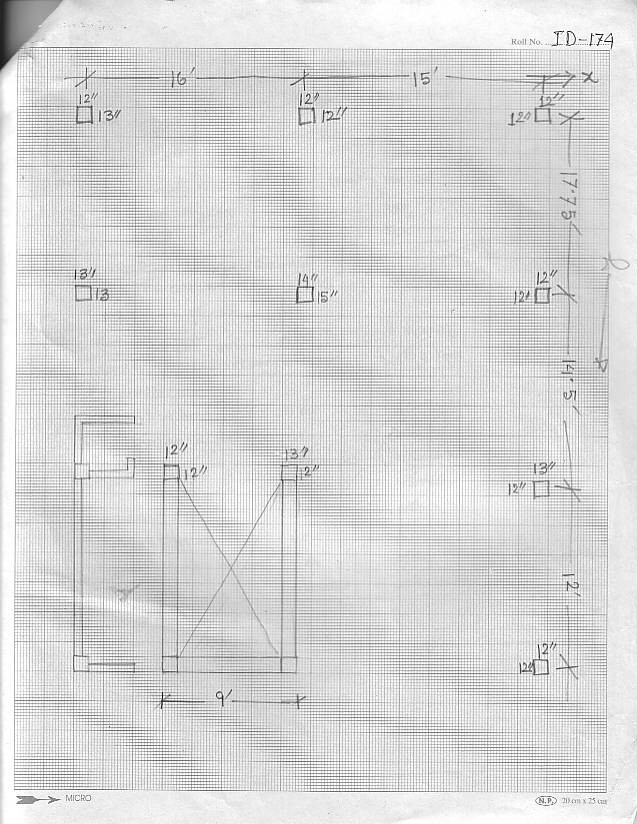 Roll No. ID-174
16' 15' x
12" 12" 12"
13" 12" 12"
17.75'
13" 14" 12"
13 15" 12"
14.5'
12" 13" 13"
12" 12" 12"
12'
12"
12"
9'
MICRO N.P. 20 cm x 25 cm